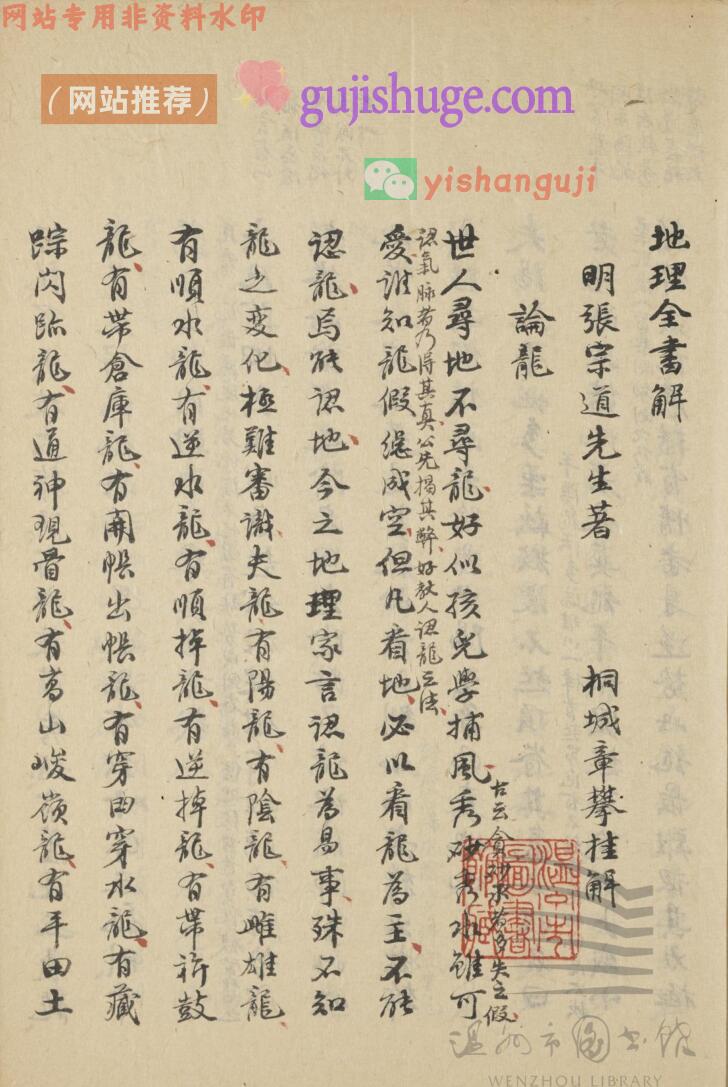 网站专用非资料水印
(网站推荐)
gujishuge.com
yishanguji
地理全書解
明張宗道先生著　桐城章攀桂解
論龍
世人尋地不尋龍好似孩兒學捕風秀砂秀水雖可
古云貪砂水者多失之假
認氣脉者乃得其真公先揭其弊好教人認龍之法
愛誰知龍假總成空但凡看地必以看龍為主不能
認龍焉能認地今之地理家言認龍為易事殊不知
龍之变化極難審識夫龍有陽龍有陰龍有雌雄龍
有順水龍有逆水龍有順掉龍有逆掉龍有带旂鼓
龍有带倉庫龍有開帳出帳龍有穿田穿水龍有藏
踪閃跡龍有通神現骨龍有高山峻嶺龍有平田土
溫州市圖書館藏
温州市图书馆
WENZHOU LIBRARY